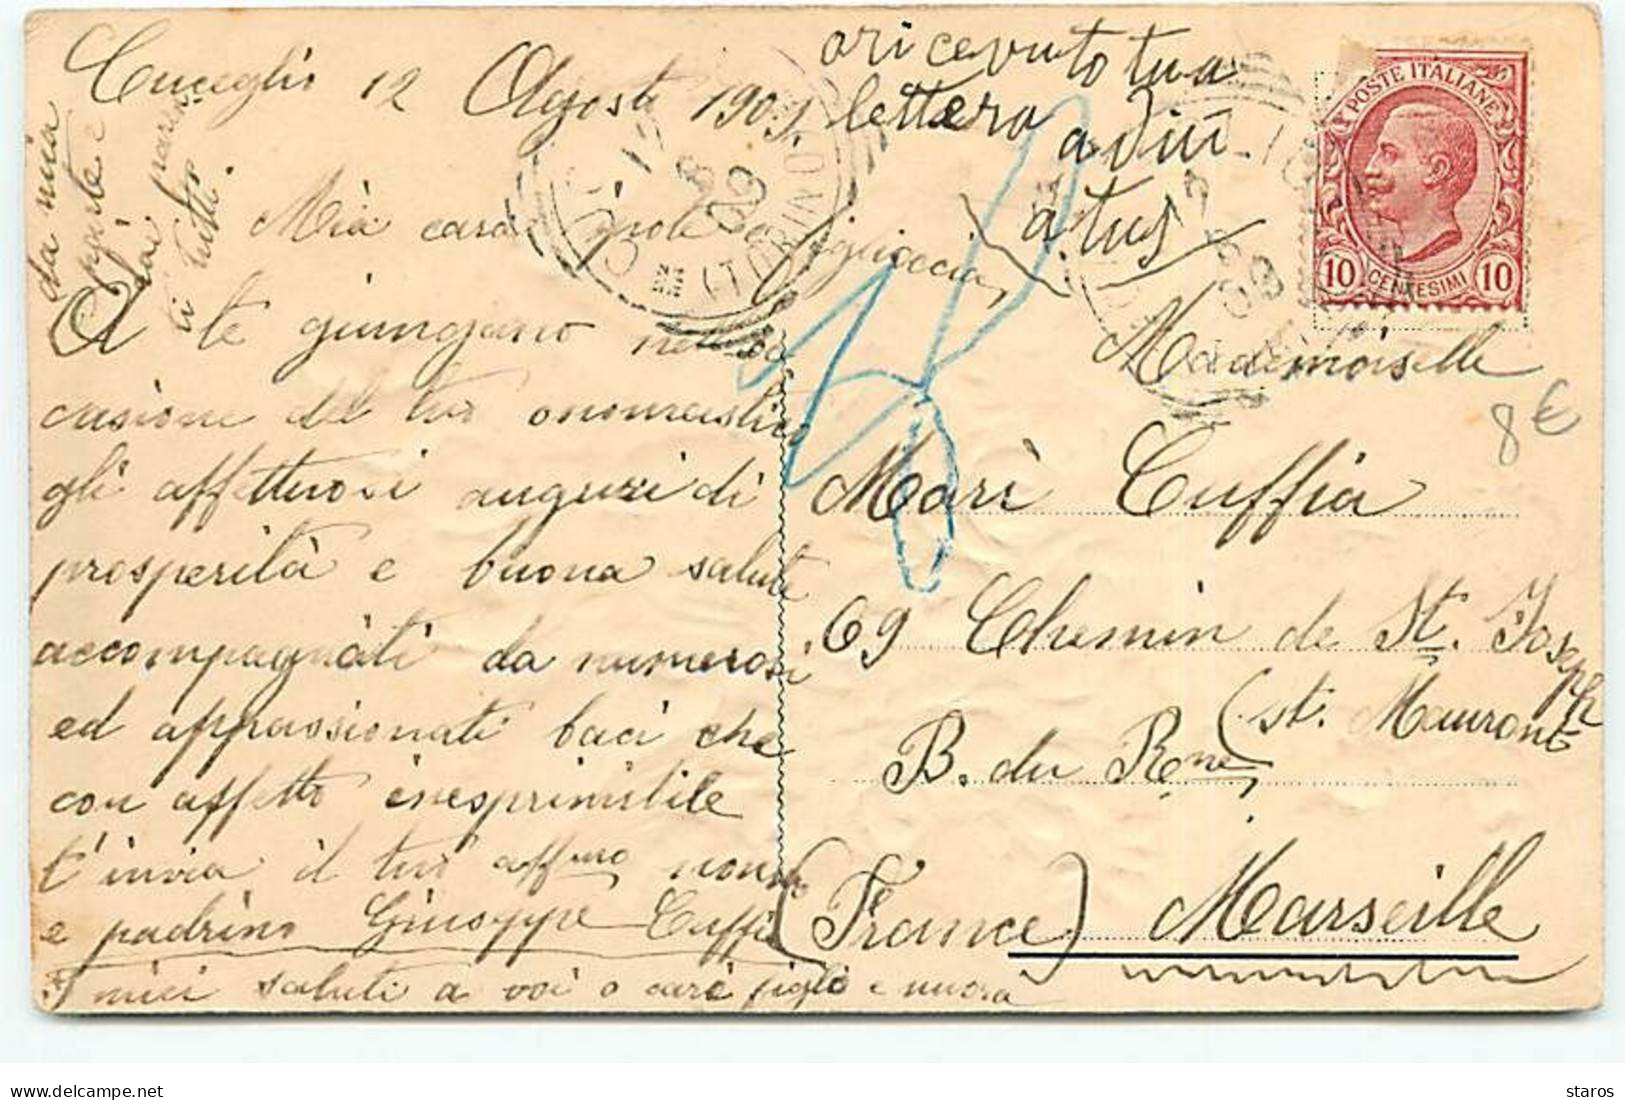 Cuceglio 12 Agosto 1909.
Mià cara nipote e figlioccia,
A te giungano nell'oc
casione del tuo onomastico
gli affettuosi auguri di
prosperità e buona salute
accompagnati da numerosi
ed appassionati baci che
con affetto inesprimibile
t'invia il tuo affmo nonno
e padrino Giuseppe Cuffia
I miei saluti a voi o cari figli e nuora
da mia
parte e
dai parenti
ti tutti
o ricevuto tua
lettera
POSTE ITALIANE
10 CENTESIMI 10
Mademoiselle
8€
Marì Cuffia
69 Chemin de St. Joseph
(st. Mauront
B. du Rne)
(France) Marseille
(TORINO)
12 8 09
delcampe.net
staros